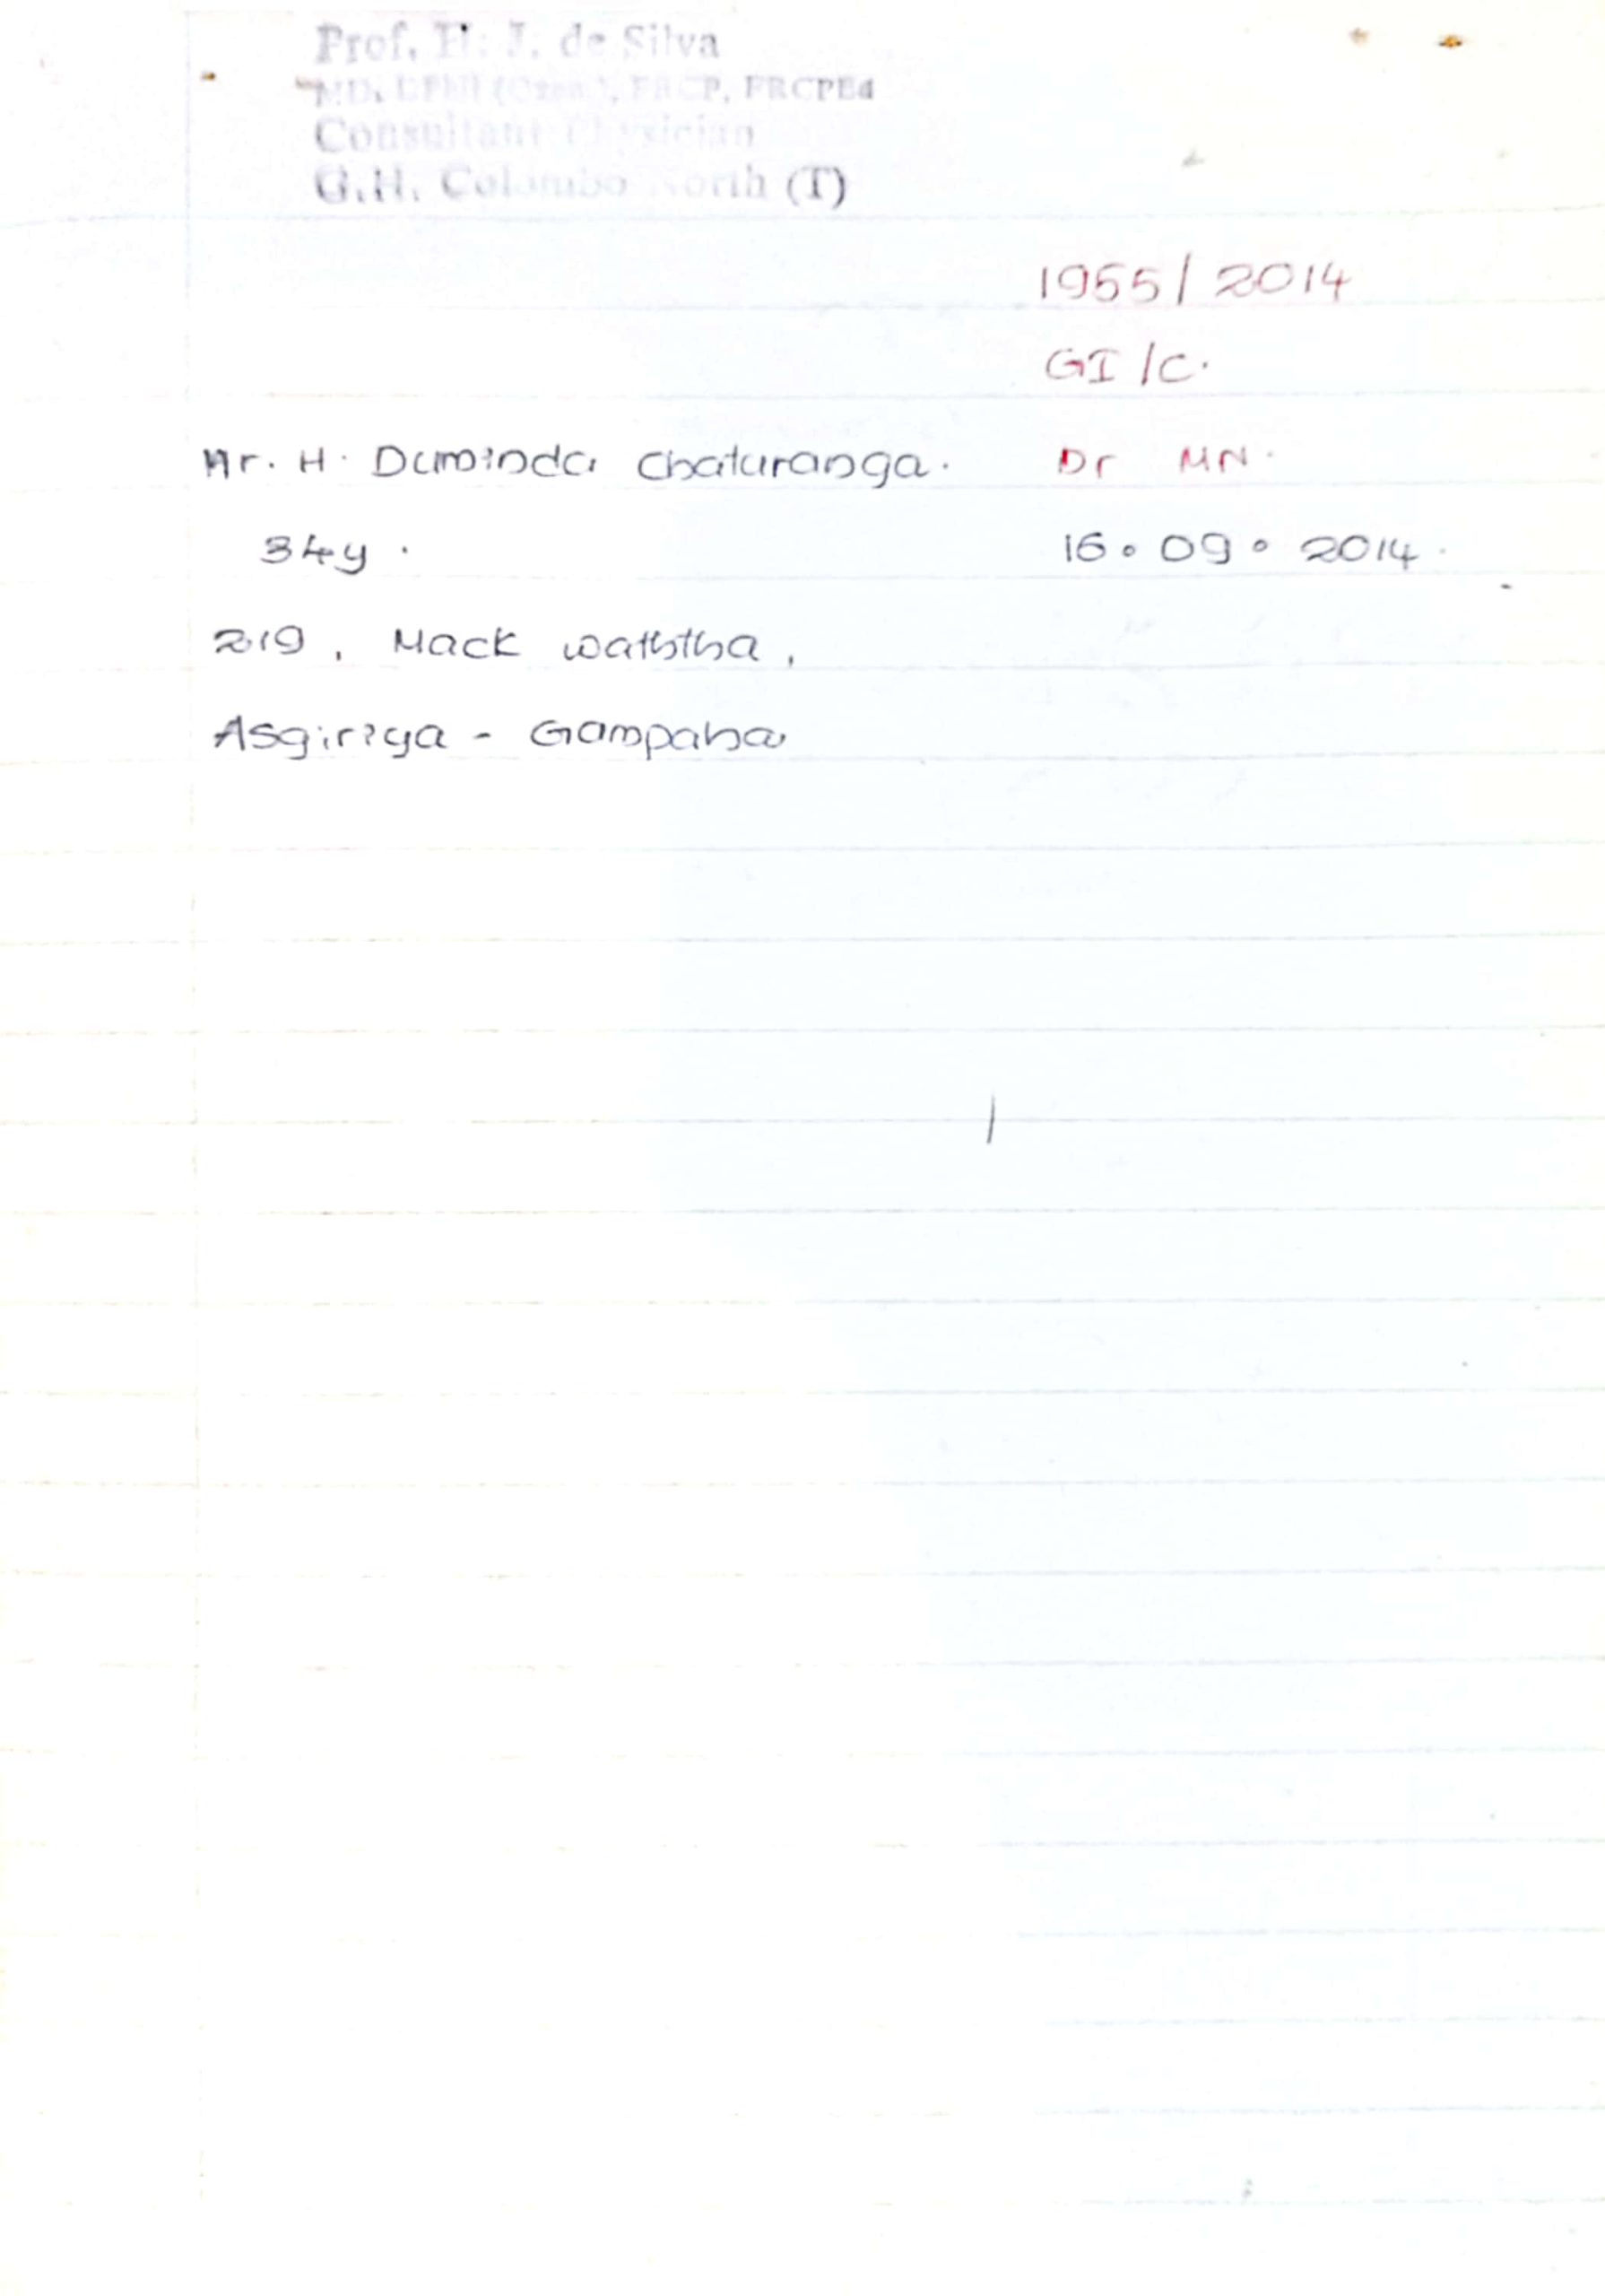 Prof. H. J. de Silva
MD, DPhil (Oxon), FRCP, FRCPEd
Consultant Physician
G.H. Colombo North (T)
1955/2014
GI/C.
Mr. H. Duminda Chaturanga. Dr MN.
34y. 16.09.2014.
219, Mack waththa,
Asgiriya - Gampaha